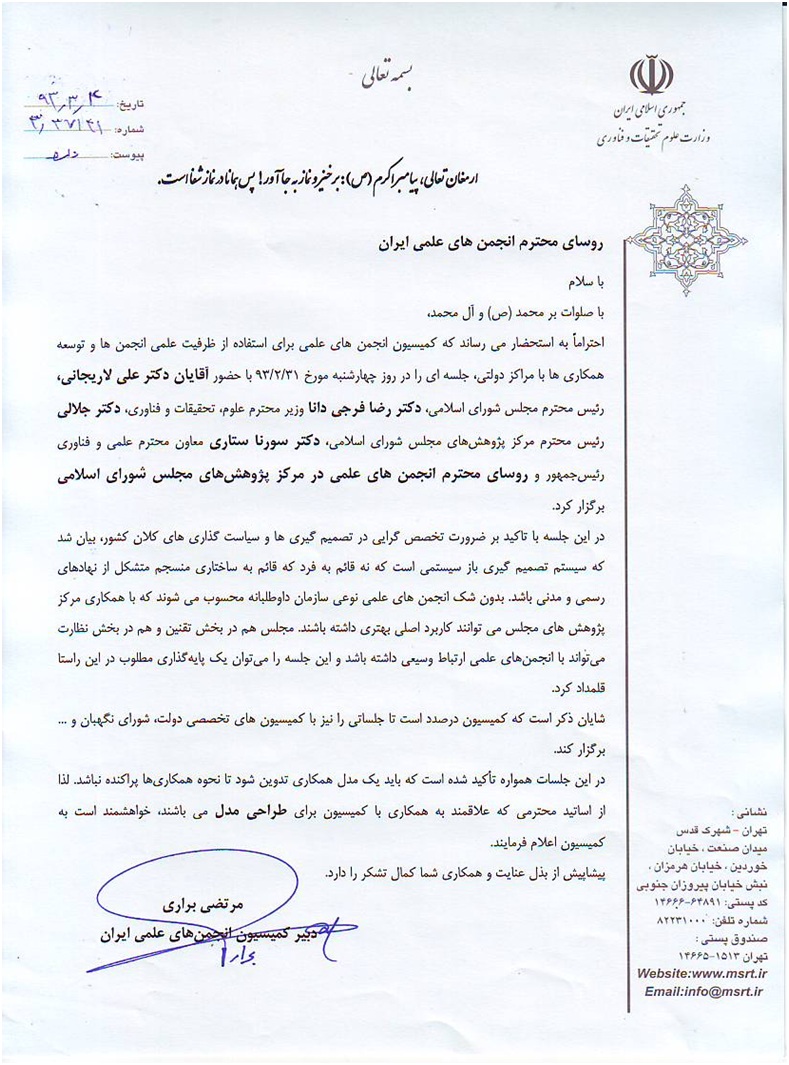 بسمه تعالی
جمهوری اسلامی ایران
وزارت علوم تحقیقات و فناوری
تاریخ: ۹۳/۳/۴
شماره:
پیوست: دارد
ارمغان تعالی، پیامبر اکرم (ص): برخیز و نماز به جا آور! پس همانا در نماز شفا است.
روسای محترم انجمن های علمی ایران
با سلام
با صلوات بر محمد (ص) و آل محمد،
احتراماً به استحضار می رساند که کمیسیون انجمن های علمی برای استفاده از ظرفیت علمی انجمن ها و توسعه
همکاری ها با مراکز دولتی، جلسه ای را در روز چهارشنبه مورخ ۹۳/۲/۳۱ با حضور آقایان دکتر علی لاریجانی،
رئیس محترم مجلس شورای اسلامی، دکتر رضا فرجی دانا وزیر محترم علوم، تحقیقات و فناوری، دکتر جلالی
رئیس محترم مرکز پژوهش‌های مجلس شورای اسلامی، دکتر سورنا ستاری معاون محترم علمی و فناوری
رئیس‌جمهور و روسای محترم انجمن های علمی در مرکز پژوهش‌های مجلس شورای اسلامی
برگزار کرد.
در این جلسه با تاکید بر ضرورت تخصص گرایی در تصمیم گیری ها و سیاست گذاری های کلان کشور، بیان شد
که سیستم تصمیم گیری باز سیستمی است که نه قائم به فرد که قائم به ساختاری منسجم متشکل از نهادهای
رسمی و مدنی باشد. بدون شک انجمن های علمی نوعی سازمان داوطلبانه محسوب می شوند که با همکاری مرکز
پژوهش های مجلس می توانند کاربرد اصلی بهتری داشته باشند. مجلس هم در بخش تقنین و هم در بخش نظارت
می‌تواند با انجمن‌های علمی ارتباط وسیعی داشته باشد و این جلسه را می‌توان یک پایه‌گذاری مطلوب در این راستا
قلمداد کرد.
شایان ذکر است که کمیسیون درصدد است تا جلساتی را نیز با کمیسیون های تخصصی دولت، شورای نگهبان و ...
برگزار کند.
در این جلسات همواره تأکید شده است که باید یک مدل همکاری تدوین شود تا نحوه همکاری‌ها پراکنده نباشد. لذا
از اساتید محترمی که علاقمند به همکاری با کمیسیون برای طراحی مدل می باشند، خواهشمند است به
کمیسیون اعلام فرمایند.
پیشاپیش از بذل عنایت و همکاری شما کمال تشکر را دارد.
مرتضی براری
دبیر کمیسیون انجمن‌های علمی ایران
نشانی:
تهران - شهرک قدس
میدان صنعت، خیابان
خوردین، خیابان هرمزان،
نبش خیابان پیروزان جنوبی
کد پستی: ۶۴۸۹۱-۱۴۶۶۶
شماره تلفن: ۸۲۲۳۱۰۰۰
صندوق پستی:
تهران ۱۵۱۳-۱۴۶۶۵
Website:www.msrt.ir
Email:info@msrt.ir